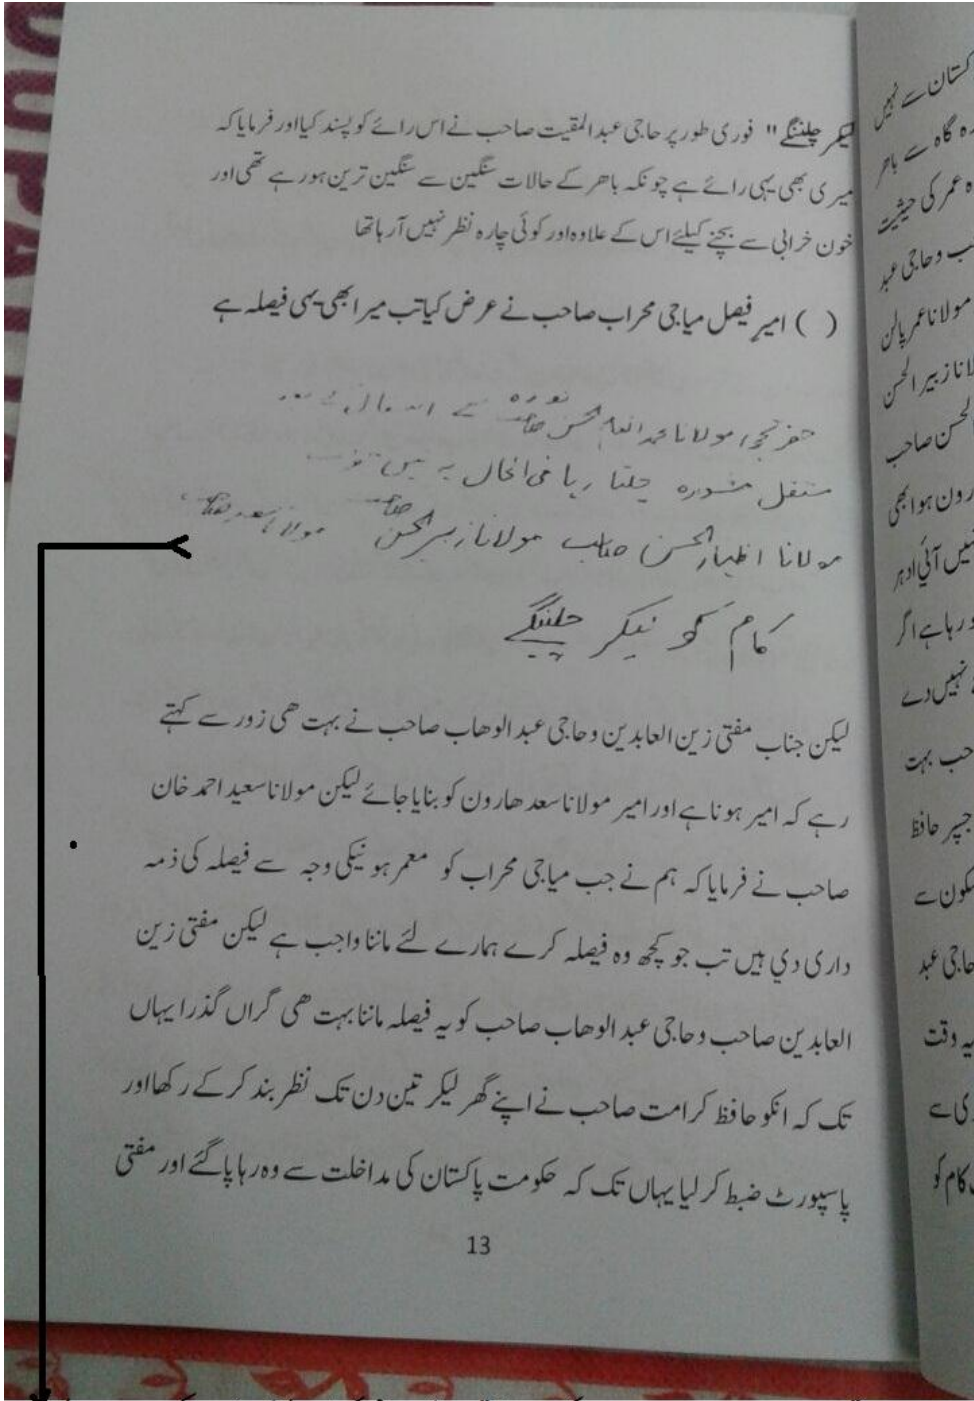 لیکر چلننگے" فوری طور پر حاجی عبد المقیت صاحب نے اس رائے کو پسند کیا اور فرمایا کہ
میری بھی یہی رائے ہے چونکہ باھر کے حالات سنگین سے سنگین ترین ہو رہے تھی اور
خون خرابی سے بچنے کیلئے اس کے علاوہ اور کوئی چارہ نظر نہیں آرہا تھا
( ) امیرِ فیصل میاجی محراب صاحب نے عرض کیا تب میرا بھی یہی فیصلہ ہے
مولانا محمد انعام الحسن صاحب نوره کے
مشورہ چلتا رہا فی الحال یہ
مولانا اظہار الحسن صاحب مولانا زبیر الحسن صاحب مولانا سعد صاحب
کام کو لیکر چلننگے
لیکن جناب مفتی زین العابدین وحاجی عبد الوھاب صاحب نے بہت ھی زور سے کہتے
رہے کہ امیر ہونا ہے اور امیر مولانا سعد ھارون کو بنایا جائے لیکن مولانا سعید احمد خان
صاحب نے فرمایا کہ ہم نے جب میاجی محراب کو معمر ہونیکی وجہ سے فیصلہ کی ذمہ
داری دی ہیں تب جو کچھ وہ فیصلہ کرے ہمارے لئے ماننا واجب ہے لیکن مفتی زین
العابدین صاحب وحاجی عبد الوھاب صاحب کو یہ فیصلہ ماننا بہت ھی گراں گذرا یہاں
تک کہ انکو حافظ کرامت صاحب نے اپنے گھر لیکر تین دن تک نظر بند کر کے رکھا اور
پاسپورٹ ضبط کر لیا یہاں تک کہ حکومت پاکستان کی مداخلت سے وہ رہا پا گئے اور مفتی
13
کستان سے نہیں
گاہ سے باھر
عمر کی حیثیت
وحاجی عبد
مولانا عمر پالن
زبیر الحسن
الحسن صاحب
ہوا بھی
نہیں آئی ادہر
رہا ہے اگر
نہیں دے
بہت
حافظ
سکون سے
حاجی عبد
یہ وقت
سے
کام کو